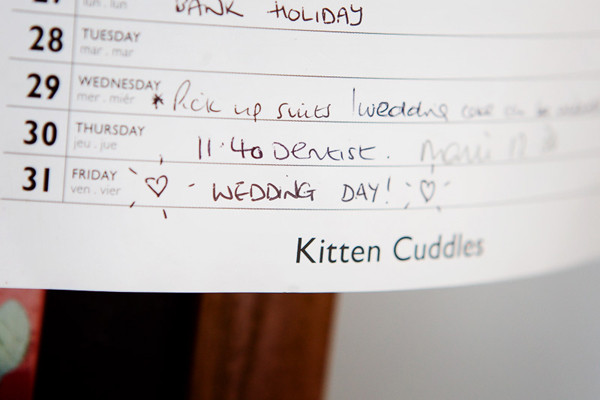 27 lun . lun BANK HOLIDAY
28 TUESDAY
mar . mar
29 WEDNESDAY * Pick up suits ! wedding
mer . miér
30 THURSDAY 11.40 DENTIST.
jeu . jue
31 FRIDAY ♡ - WEDDING DAY! ♡
ven . vier
Kitten Cuddles